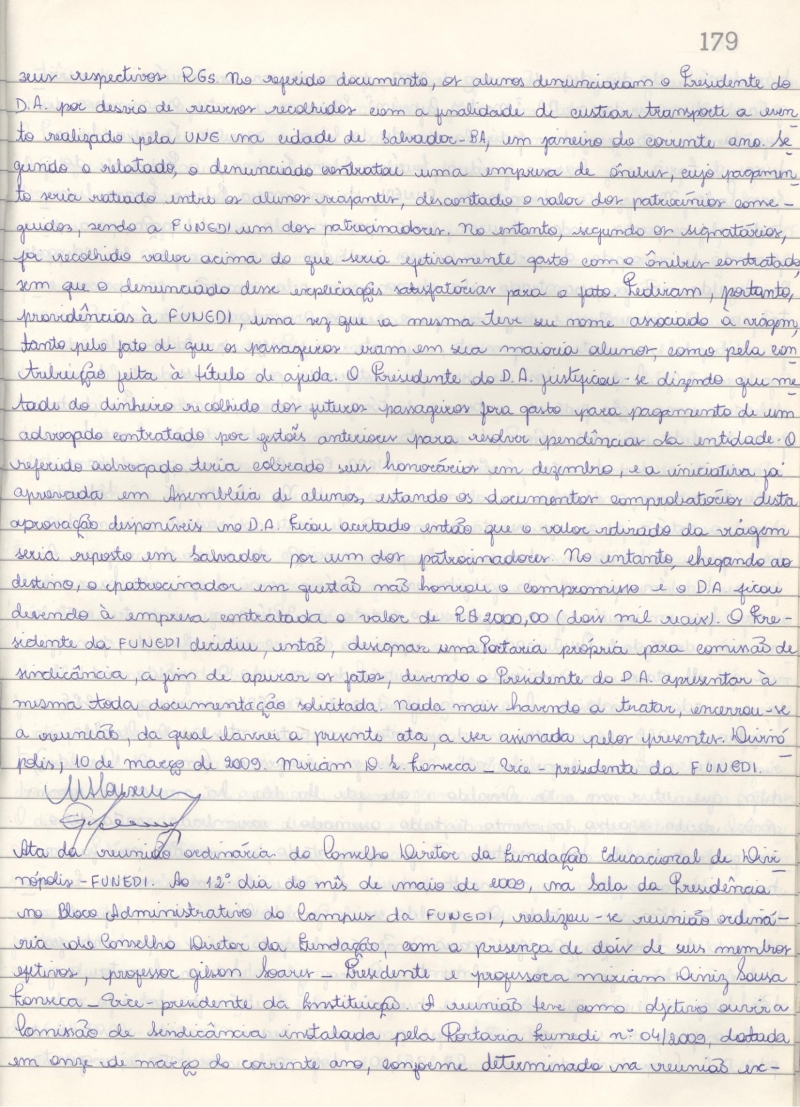 179
seus respectivos RGs. No referido documento, os alunos denunciaram o Presidente do
D.A. por desvio de recursos recolhidos com a finalidade de custear transporte a even-
to realizado pela UNE na cidade de Salvador-BA, em janeiro do corrente ano. Se-
gundo o relatado, o denunciado contratou uma empresa de ônibus, cujo pagamen-
to seria rateado entre os alunos viajantes, descontado o valor dos patrocínios conse-
guidos, sendo a FUNEDI um dos patrocinadores. No entanto, segundo os signatários,
foi recolhido valor acima do que seria efetivamente gasto com o ônibus contratado,
sem que o denunciado desse explicações satisfatórias para o fato. Pediram, portanto,
providências à FUNEDI, uma vez que a mesma teve seu nome associado à viagem,
tanto pelo fato de que os passageiros eram em sua maioria alunos, como pela con-
tribuição feita à título de ajuda. O Presidente do D.A. justificou-se dizendo que me-
tade do dinheiro recolhido dos futuros passageiros fora gasto para pagamento de um
advogado contratado por gestões anteriores para resolver pendências da entidade. O
referido advogado teria cobrado seus honorários em dezembro, e a iniciativa já
aprovada em Assembléia de alunos, estando os documentos comprobatórios desta
aprovação disponíveis no D.A. Ficou acertado então que o valor retirado da viagem
seria reposto em Salvador por um dos patrocinadores. No entanto, chegando ao
destino, o patrocinador em questão não honrou o compromisso e o D.A ficou
devendo à empresa contratada o valor de R$ 2000,00 (dois mil reais). O Pre-
sidente da FUNEDI decidiu, então, designar uma Portaria própria para comissão de
sindicância, a fim de apurar os fatos, devendo o Presidente do D.A. apresentar à
mesma toda documentação solicitada. Nada mais havendo a tratar, encerrou-se
a reunião, da qual lavrei a presente ata, a ser assinada pelos presentes. Divinó-
polis, 10 de março de 2009. Miriam D. S. Fonseca _ Vice-presidente da FUNEDI.
Ata da reunião ordinária do Conselho Diretor da Fundação Educacional de Divi-
nópolis-FUNEDI. Ao 12º dia do mês de maio de 2009, na Sala da Presidência
no Bloco Administrativo do Campus da FUNEDI, realizou-se reunião ordiná-
ria do Conselho Diretor da Fundação, com a presença de dois de seus membros
efetivos, professor Gilson Soares _ Presidente e professora Miriam Diniz Sousa
Fonseca _ Vice-presidente da Instituição. A reunião teve como objetivo ouvir a
Comissão de Sindicância instalada pela Portaria Funedi nº 04/2009, datada
em onze de março do corrente ano, conforme determinado na reunião ex-